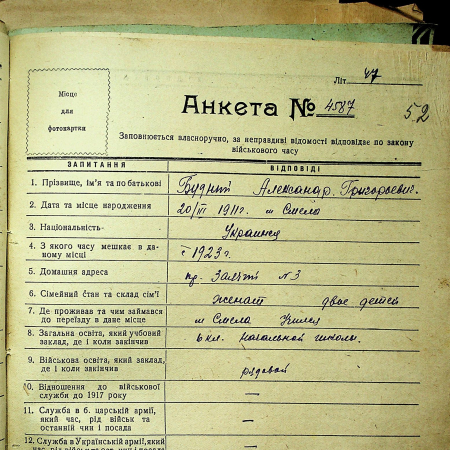 Літ. 47
Місце
для
фотокартки
Анкета № 4587
52
Заповнюється власноручно, за неправдиві відомості відповідає по закону
військового часу
ЗАПИТАННЯ
ВІДПОВІДІ
1. Прізвище, ім'я та по батькові
Александр Григорьевич
2. Дата та місце народження
20/III 1911 г. м Смела
3. Національність
Украинец
4. З якого часу мешкає в да-
ному місці
с 1923 г.
5. Домашня адреса
№ 3
6. Сімейний стан та склад сім'ї
женат двое детей
7. Де проживав та чим займався
до переїзду в дане місце
м Смела Учился
8. Загальна освіта, який учбовий
заклад, де і коли закінчив
6 кл. начальной школы.
9. Військова освіта, який заклад,
де і коли закінчив
рядовой
10. Відношення до військової
служби до 1917 року
—
11. Служба в б. царській армії,
який час, рід військ та
останній чин і посада
—
12. Служба в Українській армії, який
час, рід військ та ост. чин і посада
—